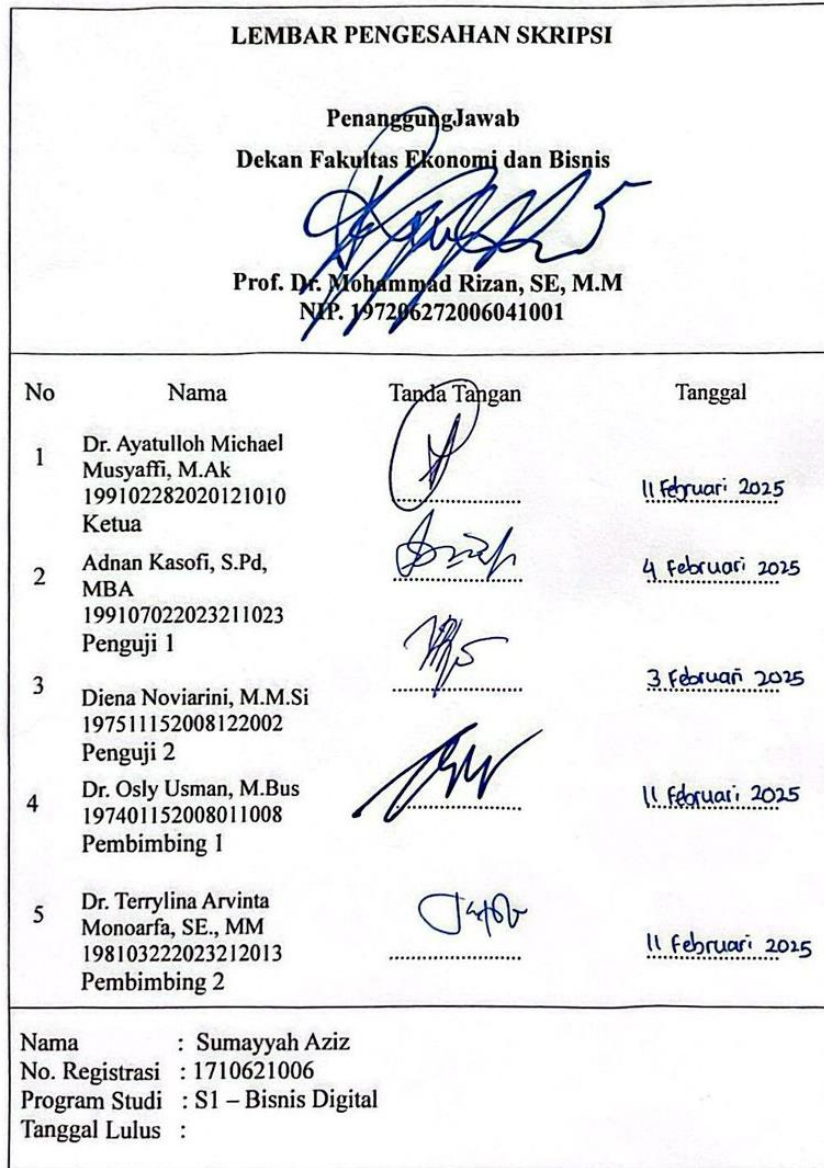 LEMBAR PENGESAHAN SKRIPSI
PenanggungJawab
Dekan Fakultas Ekonomi dan Bisnis
Prof. Dr. Mohammad Rizan, SE, M.M
NIP. 197206272006041001
No Nama Tanda Tangan Tanggal
1 Dr. Ayatulloh Michael
Musyaffi, M.Ak
199102282020121010 11 Februari 2025
Ketua
2 Adnan Kasofi, S.Pd, 4 Februari 2025
MBA
199107022023211023
Penguji 1
3 3 Februari 2025
Diena Noviarini, M.M.Si
197511152008122002
Penguji 2
4 Dr. Osly Usman, M.Bus 11 Februari 2025
197401152008011008
Pembimbing 1
5 Dr. Terrylina Arvinta
Monoarfa, SE., MM
198103222023212013 11 Februari 2025
Pembimbing 2
Nama : Sumayyah Aziz
No. Registrasi : 1710621006
Program Studi : S1 – Bisnis Digital
Tanggal Lulus :